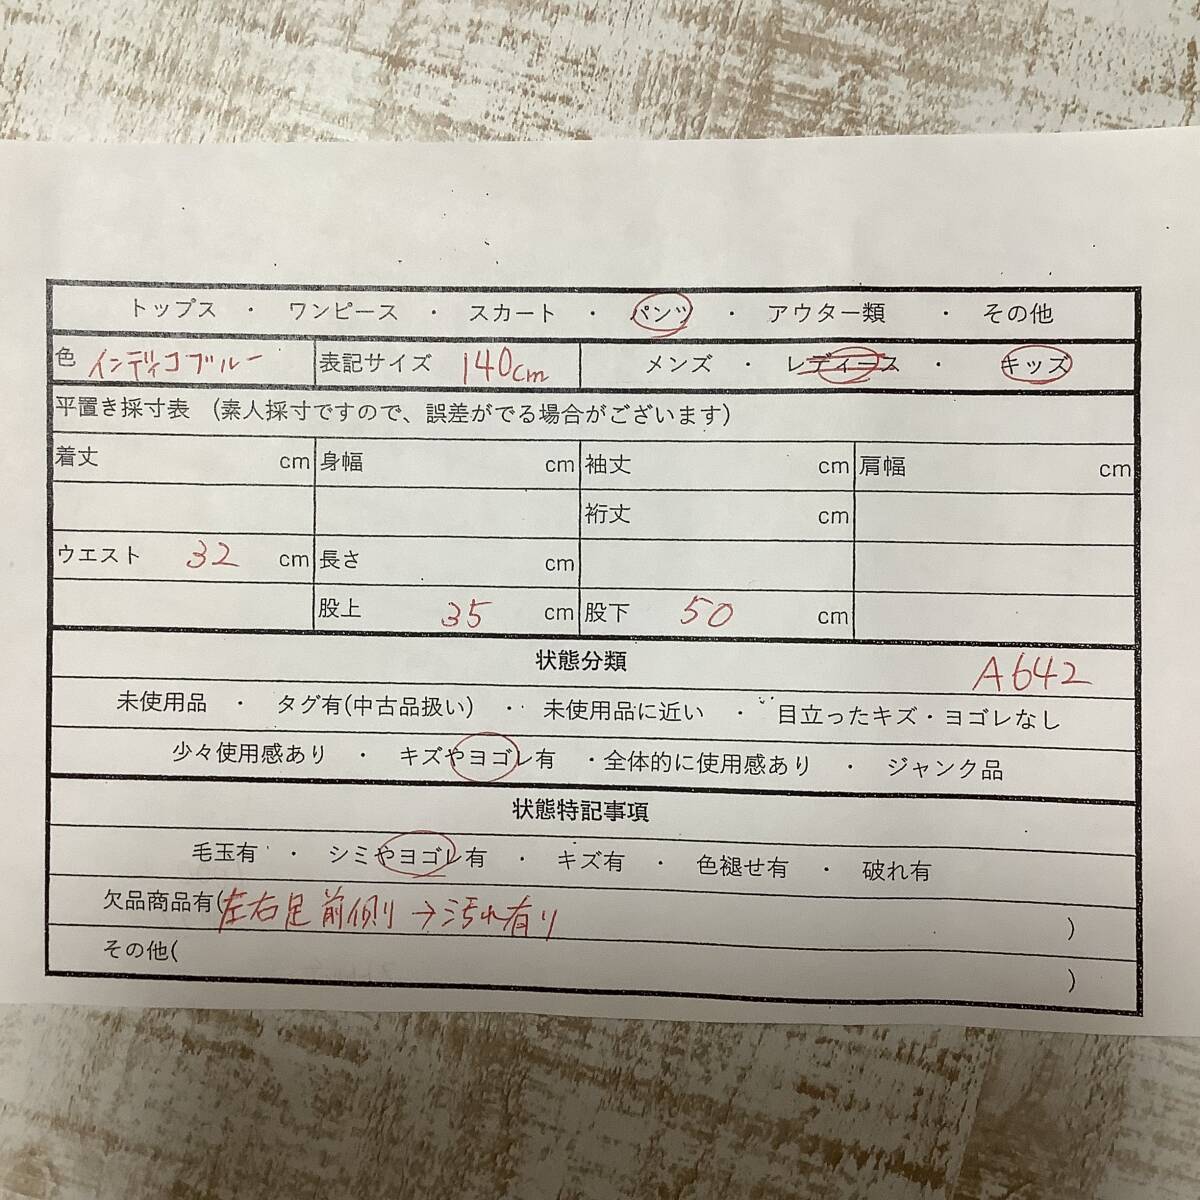 トップス ・ ワンピース ・ スカート ・ パンツ ・ アウター類 ・ その他
色 インディゴブルー 表記サイズ 140cm メンズ ・ レディース ・ キッズ
平置き採寸表 (素人採寸ですので、誤差がでる場合がございます)
着丈 cm 身幅 cm 袖丈 cm 肩幅 cm
裄丈 cm
ウエスト 32 cm 長さ cm
股上 35 cm 股下 50 cm
状態分類 A642
未使用品 ・ タグ有(中古品扱い) ・ 未使用品に近い ・ 目立ったキズ・ヨゴレなし
少々使用感あり ・ キズやヨゴレ有 ・全体的に使用感あり ・ ジャンク品
状態特記事項
毛玉有 ・ シミやヨゴレ有 ・ キズ有 ・ 色褪せ有 ・ 破れ有
欠品商品有(左右足前側→汚れ有り )
その他( )